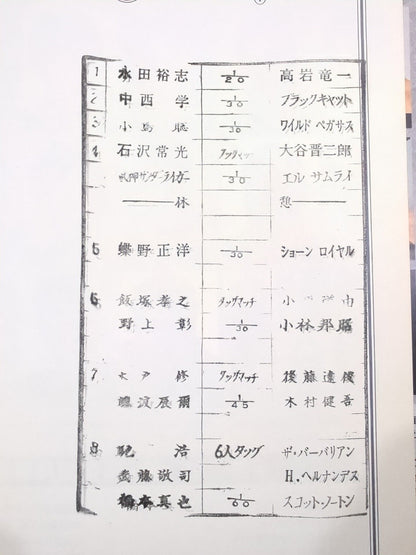 1 永田裕志 1/20 高岩竜一
2 中西学 1/30 ブラックキャット
3 小島聡 1/30 ワイルド ペガサス
4 石沢常光 タッグマッチ 大谷晋二郎
サンダーライガー 1/30 エル サムライ
休 憩
5 蝶野正洋 1/30 ショーン ロイヤル
6 飯塚孝之 タッグマッチ 小
野上彰 1/30 小林邦昭
7 木戸修 タッグマッチ 後藤達俊
藤波辰爾 1/45 木村健吾
8 馳浩 6人タッグ ザ・バーバリアン
武藤敬司 H.ヘルナンデス
橋本真也 1/60 スコット・ノートン